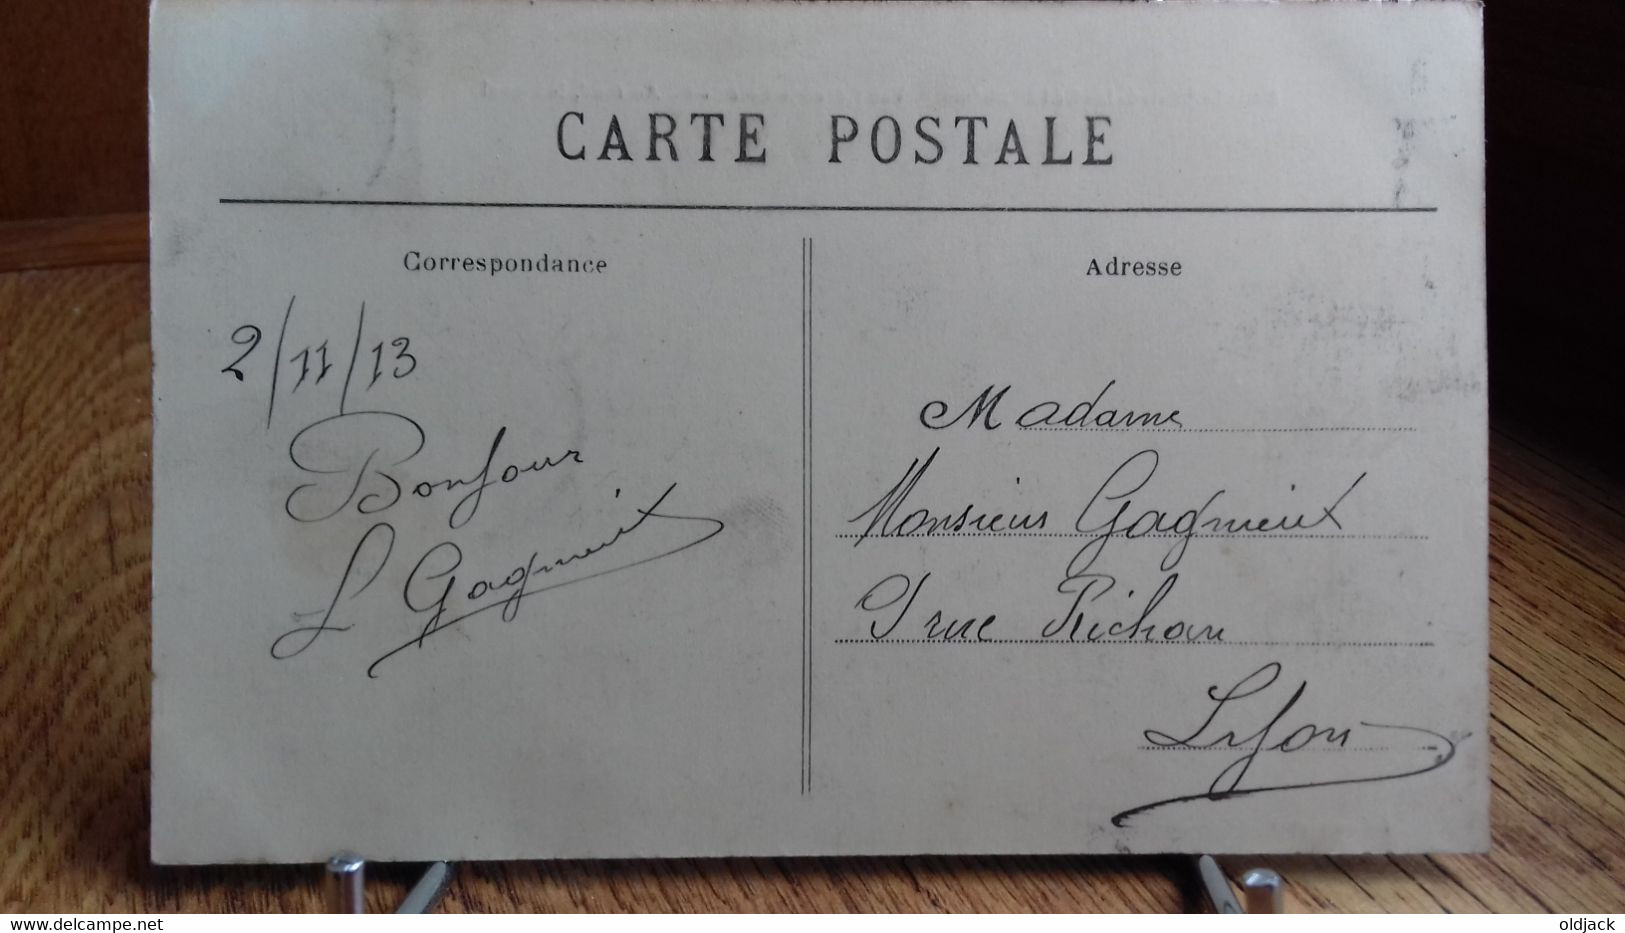 CARTE POSTALE
Correspondance
2/11/13
Bonjour
L Gagnieux
Adresse
Madame
Monsieur Gagnieux
9 rue Richan
Lyon
oldjack